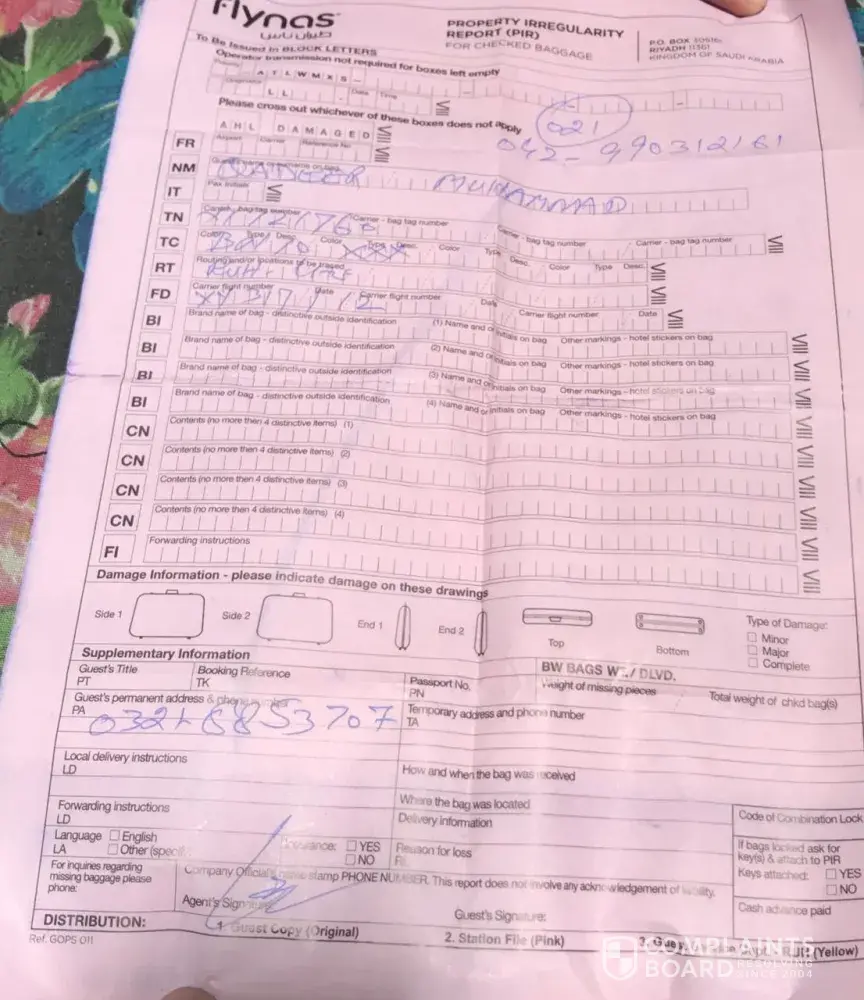 flynas
طيران ناس
PROPERTY IRREGULARITY
REPORT (PIR)
FOR CHECKED BAGGAGE
P.O. BOX
RIYADH 11361
KINGDOM OF SAUDI ARABIA
To Be Issued in BLOCK LETTERS
Operator transmission not required for boxes left empty
A T L W M X S
L L Date Time
Please cross out whichever of these boxes does not apply
021
042-990312161
A H L D A M A G E D
FR Airport Carrier Reference No.
NM
MUHAMMAD
IT Pax Initials
TN Carrier - bag tag number Carrier - bag tag number Carrier - bag tag number Carrier - bag tag number
TC Color Type Desc. Color Type Desc. Color Type Desc. Color Type Desc.
XXX
RT Routing and/or locations to be traced
RUH
FD Carrier flight number Date Carrier flight number Date Carrier flight number Date
XY 317 / 12
BI Brand name of bag - distinctive outside identification (1) Name and or initials on bag Other markings - hotel stickers on bag
BI Brand name of bag - distinctive outside identification (2) Name and or initials on bag Other markings - hotel stickers on bag
BI Brand name of bag - distinctive outside identification (3) Name and or initials on bag Other markings - hotel stickers on bag
BI Brand name of bag - distinctive outside identification (4) Name and or initials on bag Other markings - hotel stickers on bag
CN Contents (no more then 4 distinctive items) (1)
CN Contents (no more then 4 distinctive items) (2)
CN Contents (no more then 4 distinctive items) (3)
CN Contents (no more then 4 distinctive items) (4)
FI Forwarding instructions
Damage Information - please indicate damage on these drawings
Side 1 Side 2 End 1 End 2 Top Bottom
Type of Damage:
Minor
Major
Complete
Supplementary Information
Guest's Title
PT
Booking Reference
TK
Passport No.
PN
BW BAGS DLVD.
Weight of missing pieces
Total weight of chkd bag(s)
Guest's permanent address & phone number
PA
Temporary address and phone number
TA
Local delivery instructions
LD
How and when the bag was received
Where the bag was located
Forwarding instructions
LD
Delivery information
Code of Combination Lock
Language English
LA Other
YES
NO
Reason for loss
If bags locked ask for
key(s) & attach to PIR
Keys attached: YES
NO
For inquires regarding
missing baggage please
phone:
Company Official's name stamp PHONE NUMBER. This report does not involve any acknowledgement of liability.
Agent's Signature
Guest's Signature:
Cash advance paid
DISTRIBUTION: 1. Guest Copy (Original) 2. Station File (Pink) (Yellow)
Ref. GOPS 011
COMPLAINTS
BOARD RESOLVING
SINCE 2004